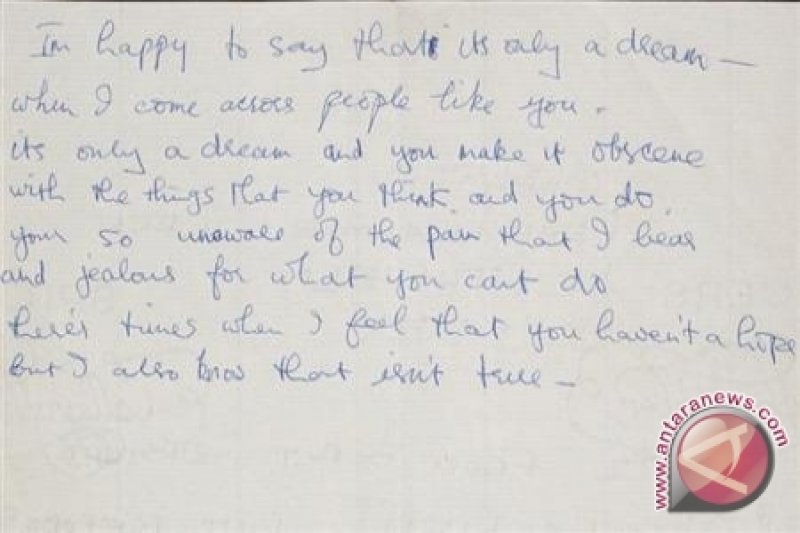 Im happy to say that its only a dream —
when I come across people like you.
its only a dream and you make it obscene
with the things that you think and you do.
your so unaware of the pain that I bear
and jealous for what you cant do
there's times when I feel that you haven't a hope
but I also know that isn't true —
www.antaranews.com